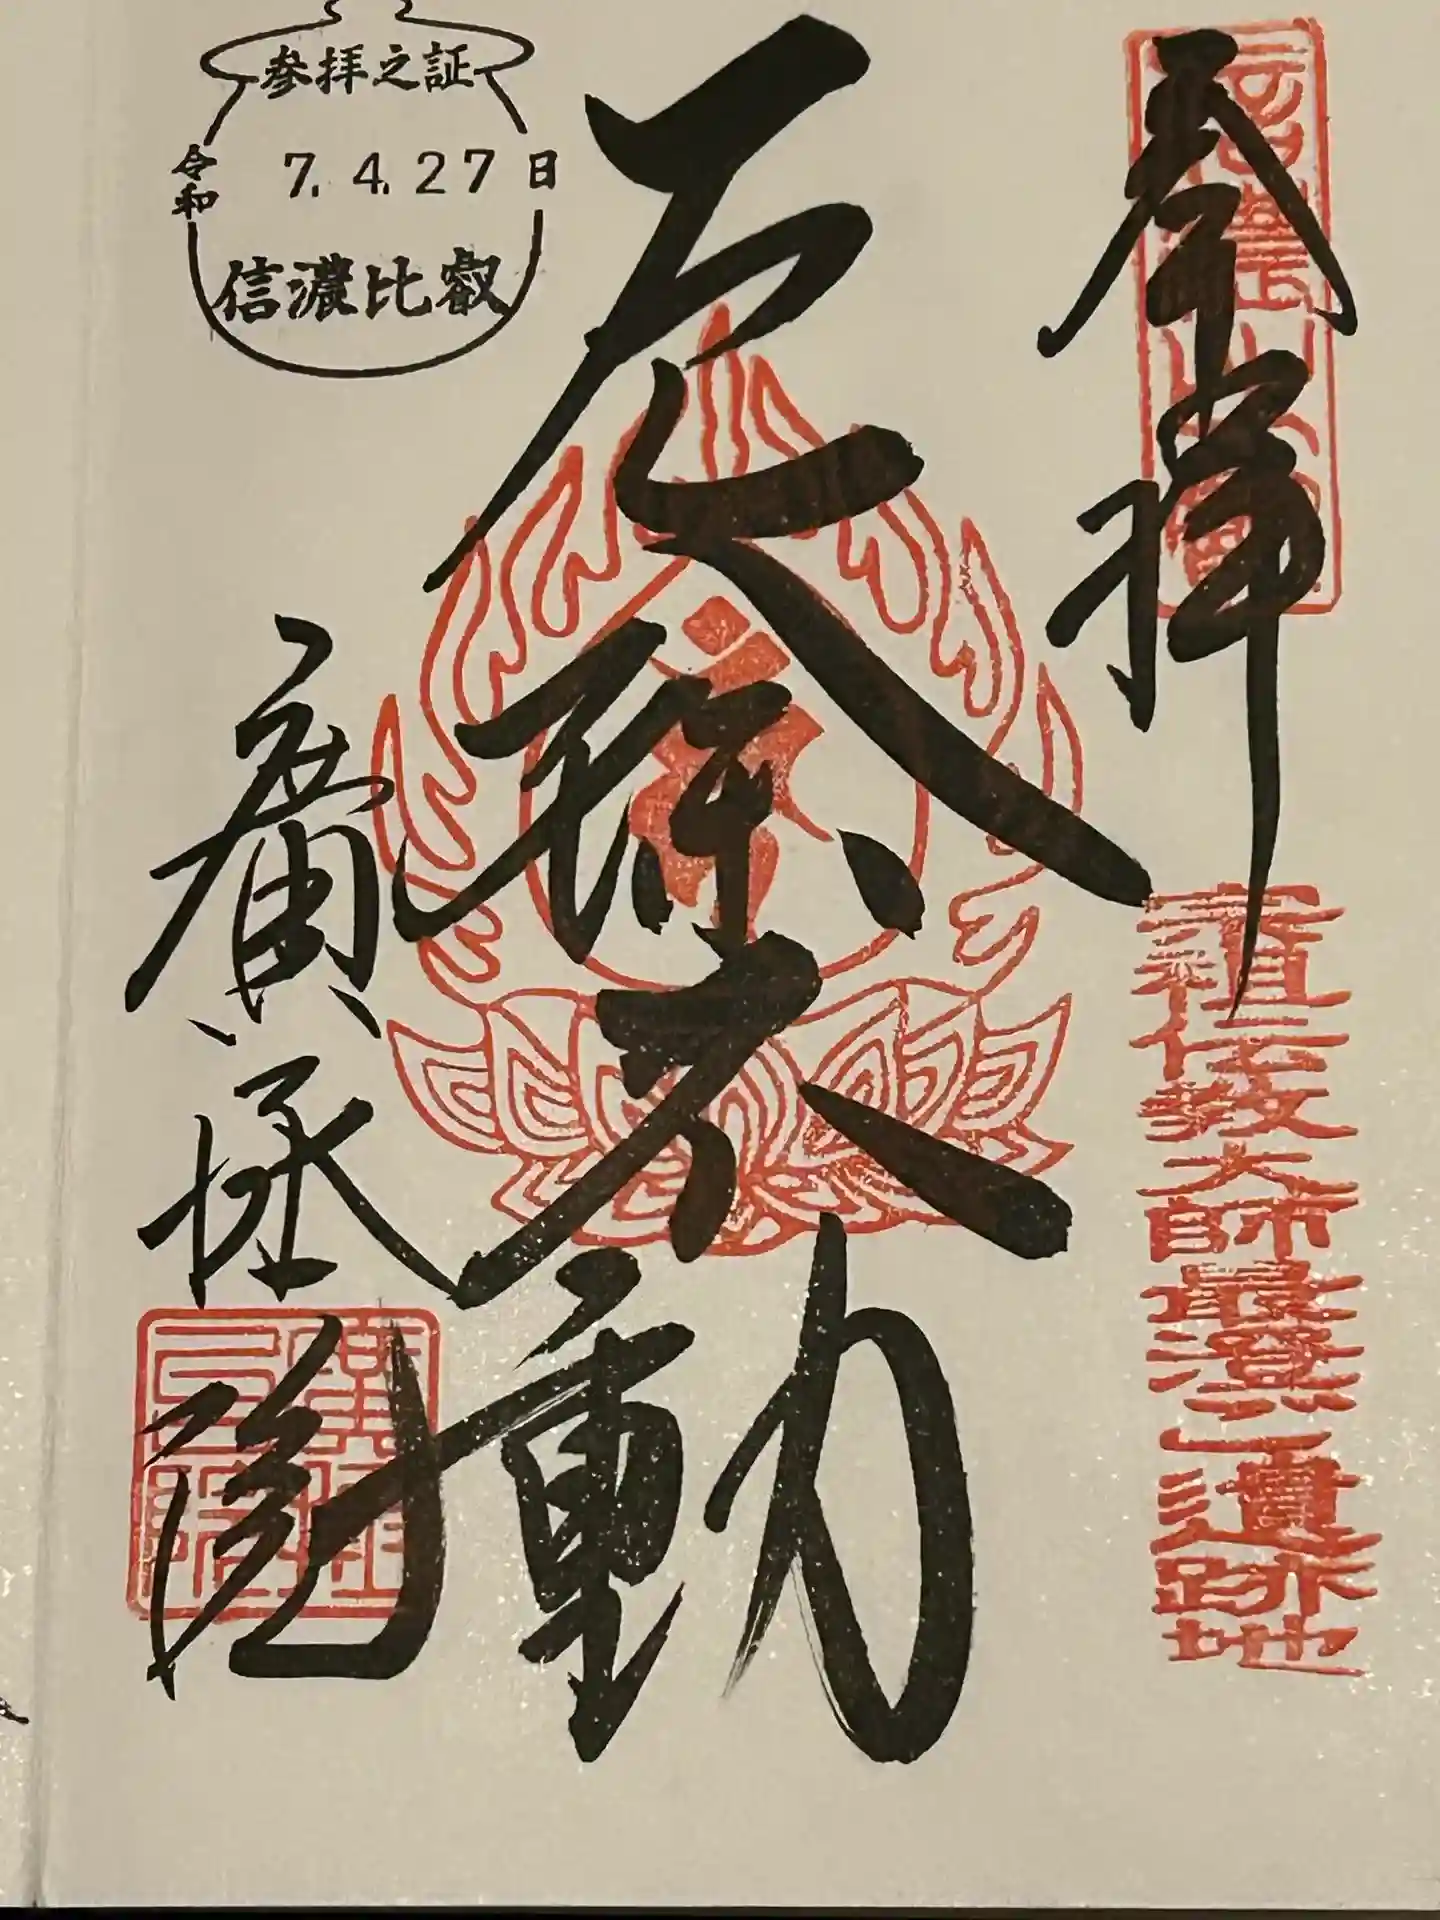 奉拝
宗祖伝教大師最澄
遺跡地
厄除不動
参拝之証
令和 7.4.27日
信濃比叡
廣拯院